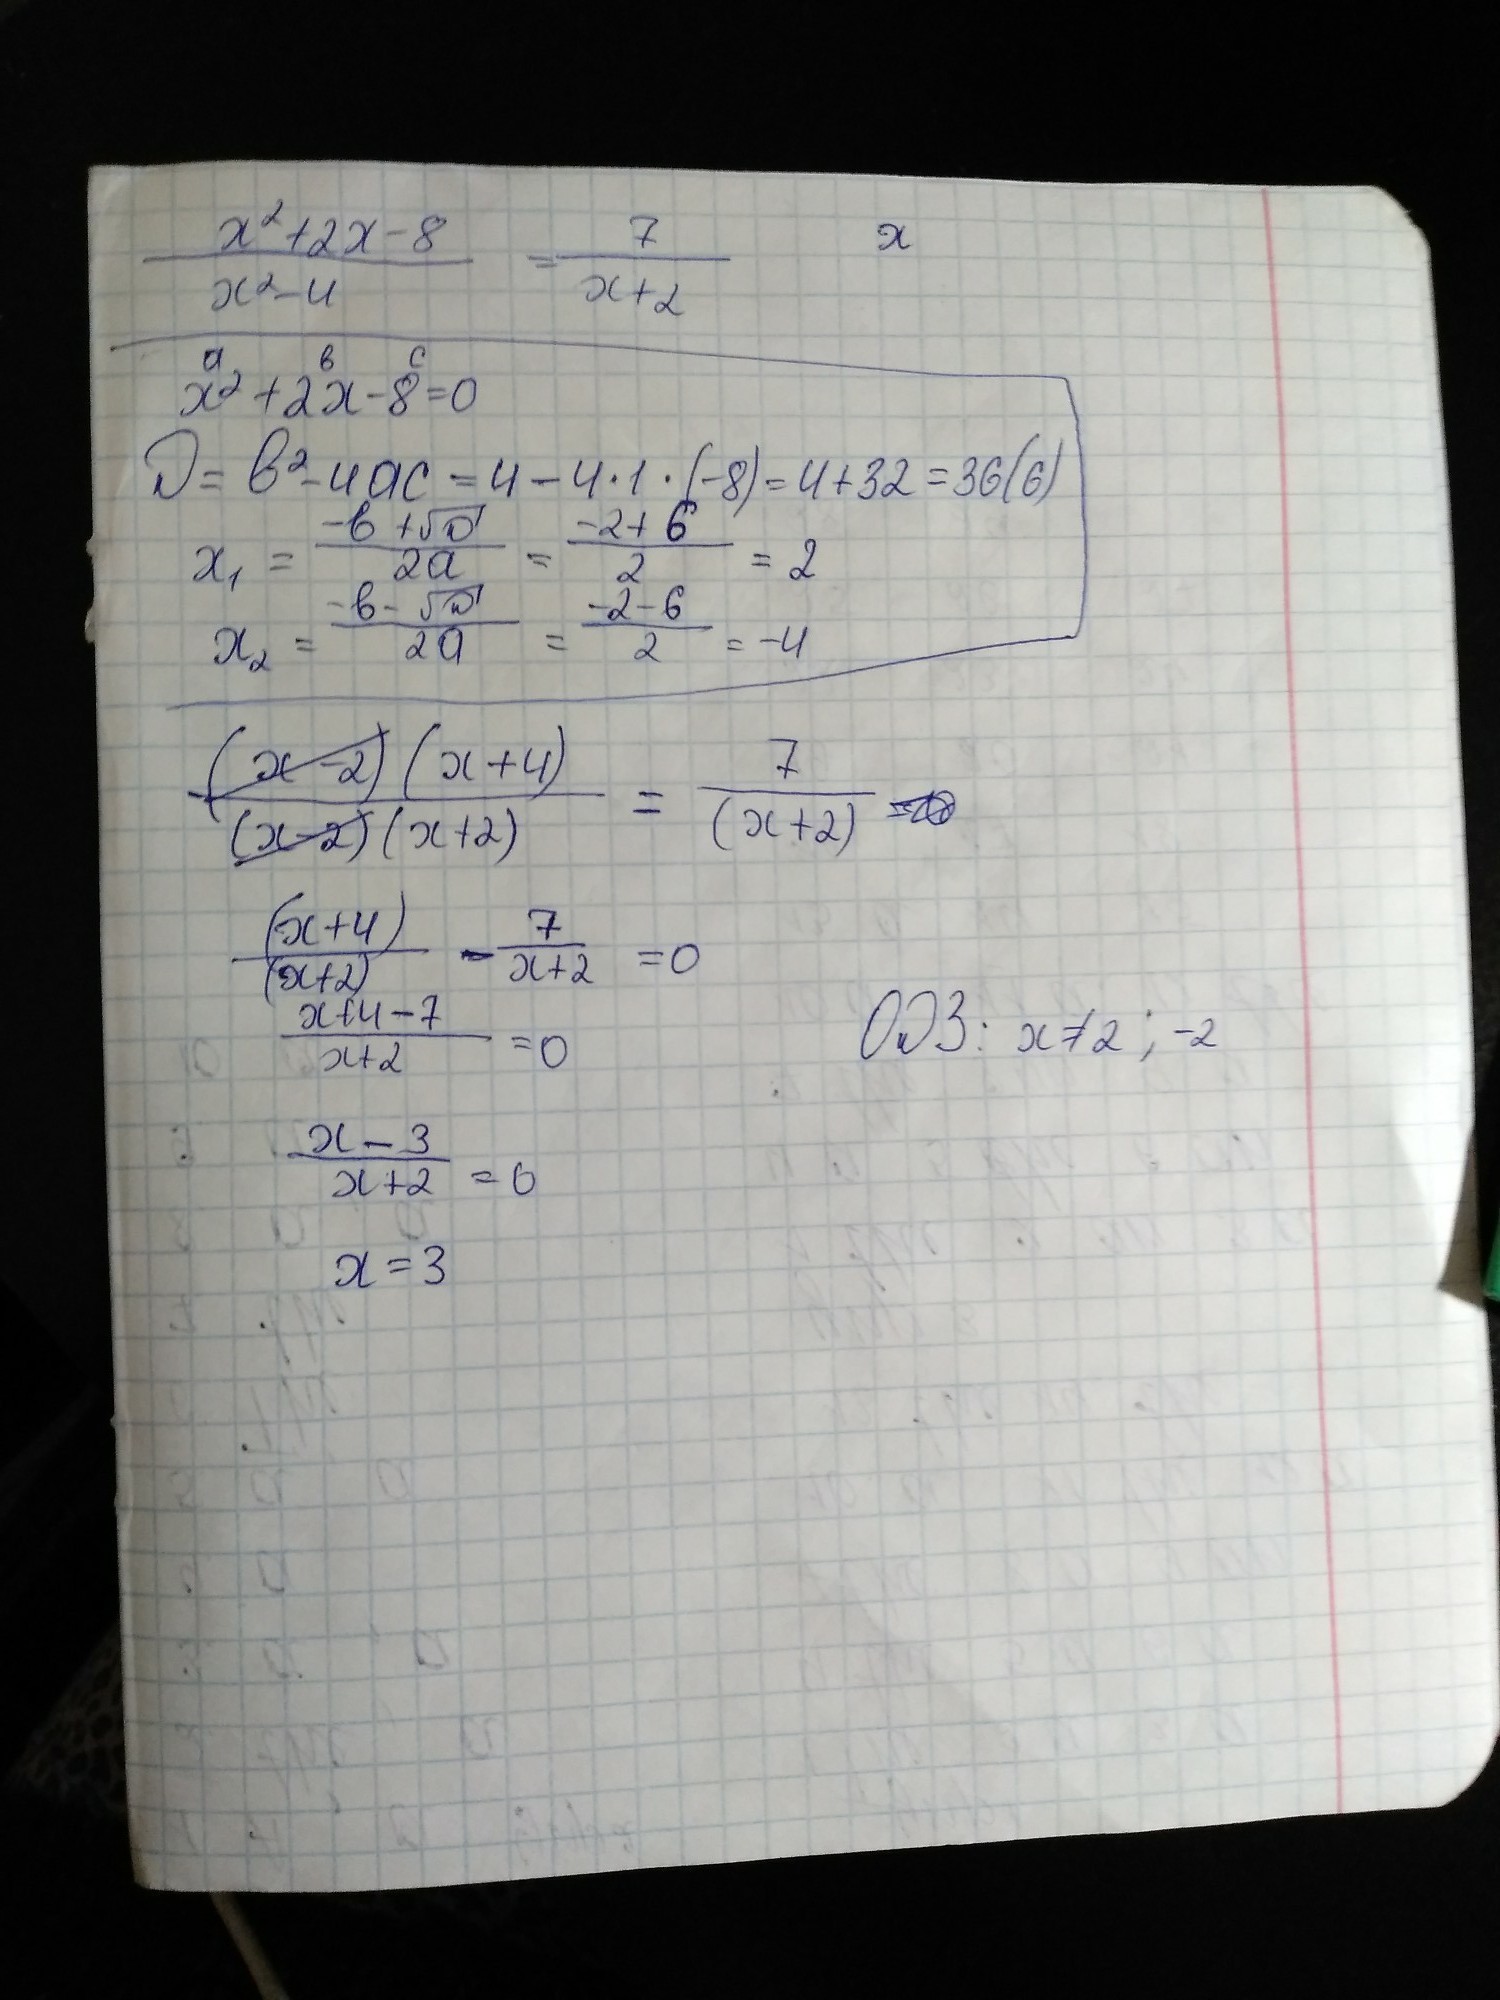 x²+2x-8 / x²-4 = 7 / x+2 x
a b c
x²+2x-8=0
D=b²-4ac=4-4·1·(-8)=4+32=36(6)
x₁ = -b+√D / 2a = -2+6 / 2 = 2
x₂ = -b-√D / 2a = -2-6 / 2 = -4
(x-2)(x+4) / (x-2)(x+2) = 7 / (x+2)
(x+4) / (x+2) - 7 / x+2 = 0
x+4-7 / x+2 = 0
ОДЗ: x≠2; -2
x-3 / x+2 = 0
x=3